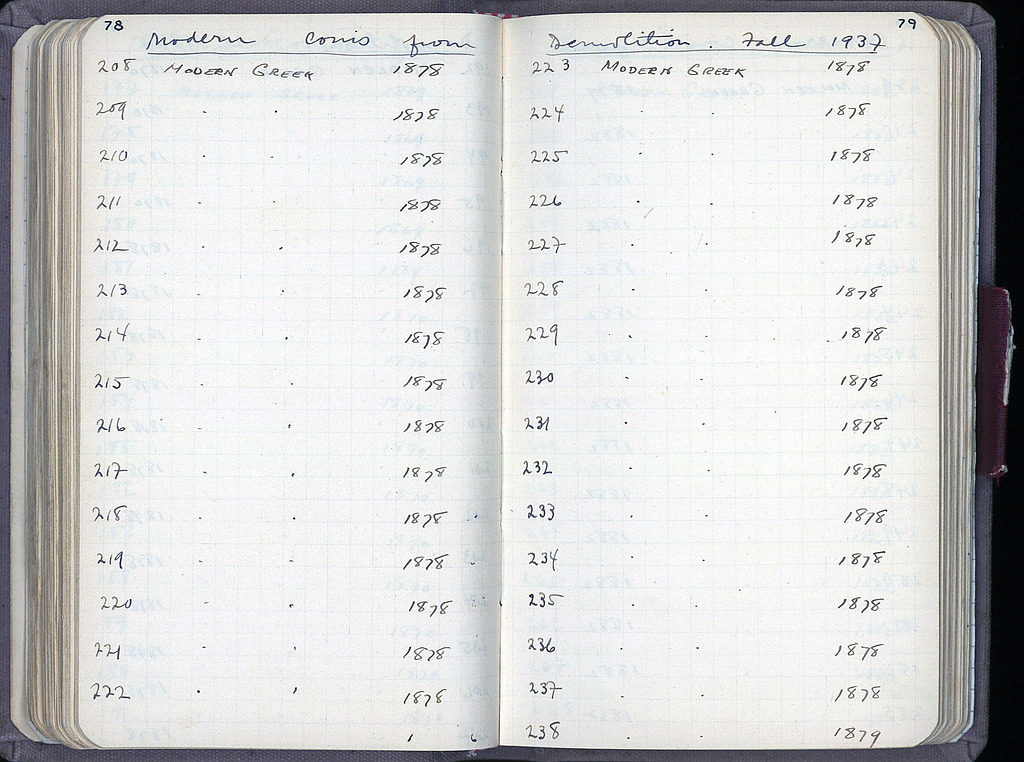 78
Modern Coins from
208 MODERN GREEK 1878
209 . . 1878
210 . . 1878
211 . . 1878
212 . . 1878
213 . . 1878
214 . . 1878
215 . . 1878
216 . . 1878
217 . . 1878
218 . . 1878
219 . . 1878
220 . . 1878
221 . . 1878
222 . . 1878
79
Demolition. Fall 1937
223 MODERN GREEK 1878
224 . . 1878
225 . . 1878
226 . . 1878
227 . . 1878
228 . . 1878
229 . . 1878
230 . . 1878
231 . . 1878
232 . . 1878
233 . . 1878
234 . . 1878
235 . . 1878
236 . . 1878
237 . . 1878
238 . . 1879